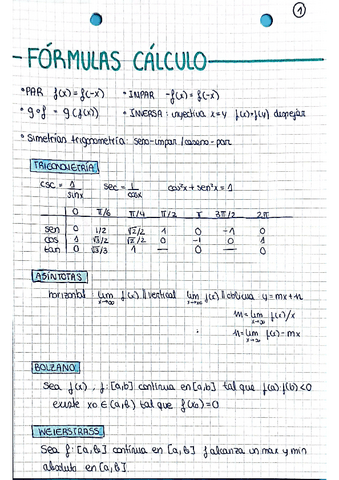 1
FÓRMULAS CÁLCULO
• PAR f(x)=f(-x) • IMPAR -f(x)=f(-x)
• g∘f = g(f(x)) • INVERSA: inyectiva x=y f(x)=f(y) despejar
• Simetrías trigonometría: seno-impar / coseno-par
TRIGONOMETRÍA
csc = 1/sinx sec = 1/cosx cos²x + sen²x = 1
0 π/6 π/4 π/2 π 3π/2 2π
sen 0 1/2 √2/2 1 0 -1 0
cos 1 √3/2 √2/2 0 -1 0 1
tan 0 √3/3 1 — 0 — 0
ASÍNTOTAS
horizontal lim f(x) || vertical lim f(x) || oblicua y = mx+n
x→∞
m = lim f(x)/x
x→∞
n = lim f(x)-mx
x→∞
BOLZANO
Sea f(x), f:[a,b] continua en [a,b] tal que f(a)·f(b)<0
existe x0 ∈ (a,b) tal que f(x0)=0
WEIERSTRASS
Sea f:[a,b] continua en [a,b] f alcanza un max y min
absoluto en [a,b].